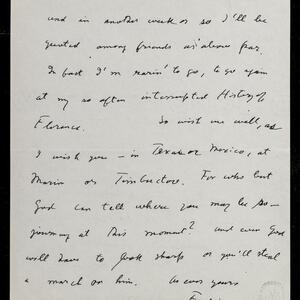 and in another week or so I'll be
quoted among friends as above par.
In fact I'm rarin' to go, to go again
at my so often interrupted History of
Florence. So wish me well, as
I wish you – in Texas or Mexico, at
Marin or Timbuctoo. For who but
God can tell where you may be so-
journing at this moment? and even God
will have to look sharp or you'll steal
a march on him. As ever yours